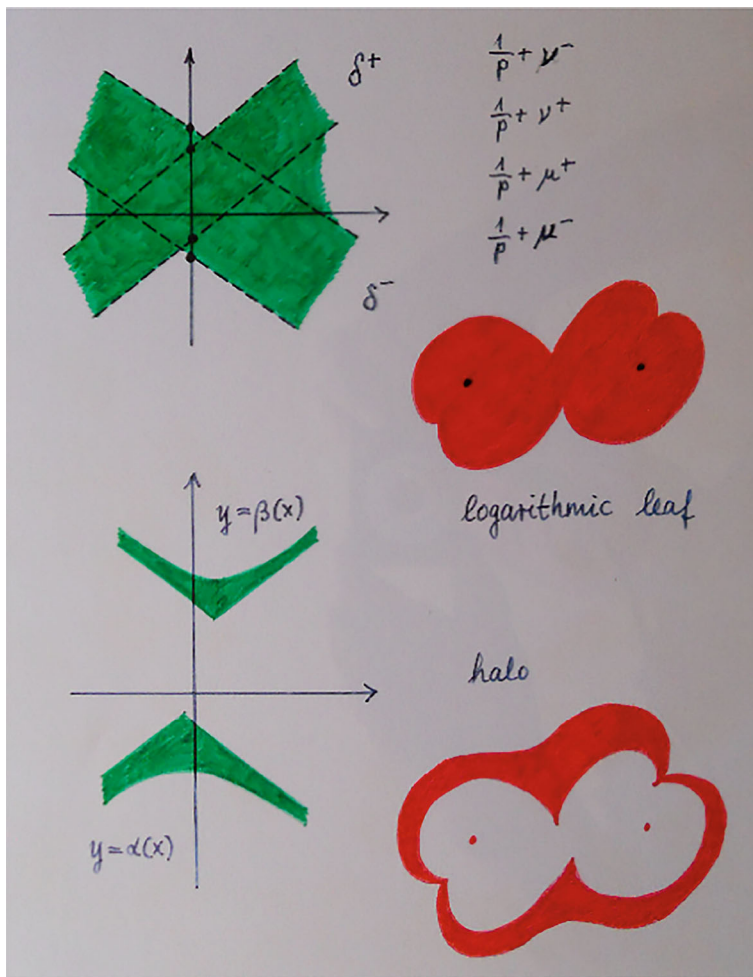 δ⁺
1/p + ν⁻
1/p + ν⁺
1/p + μ⁺
1/p + μ⁻
δ⁻
logarithmic leaf
y = β(x)
halo
y = α(x)